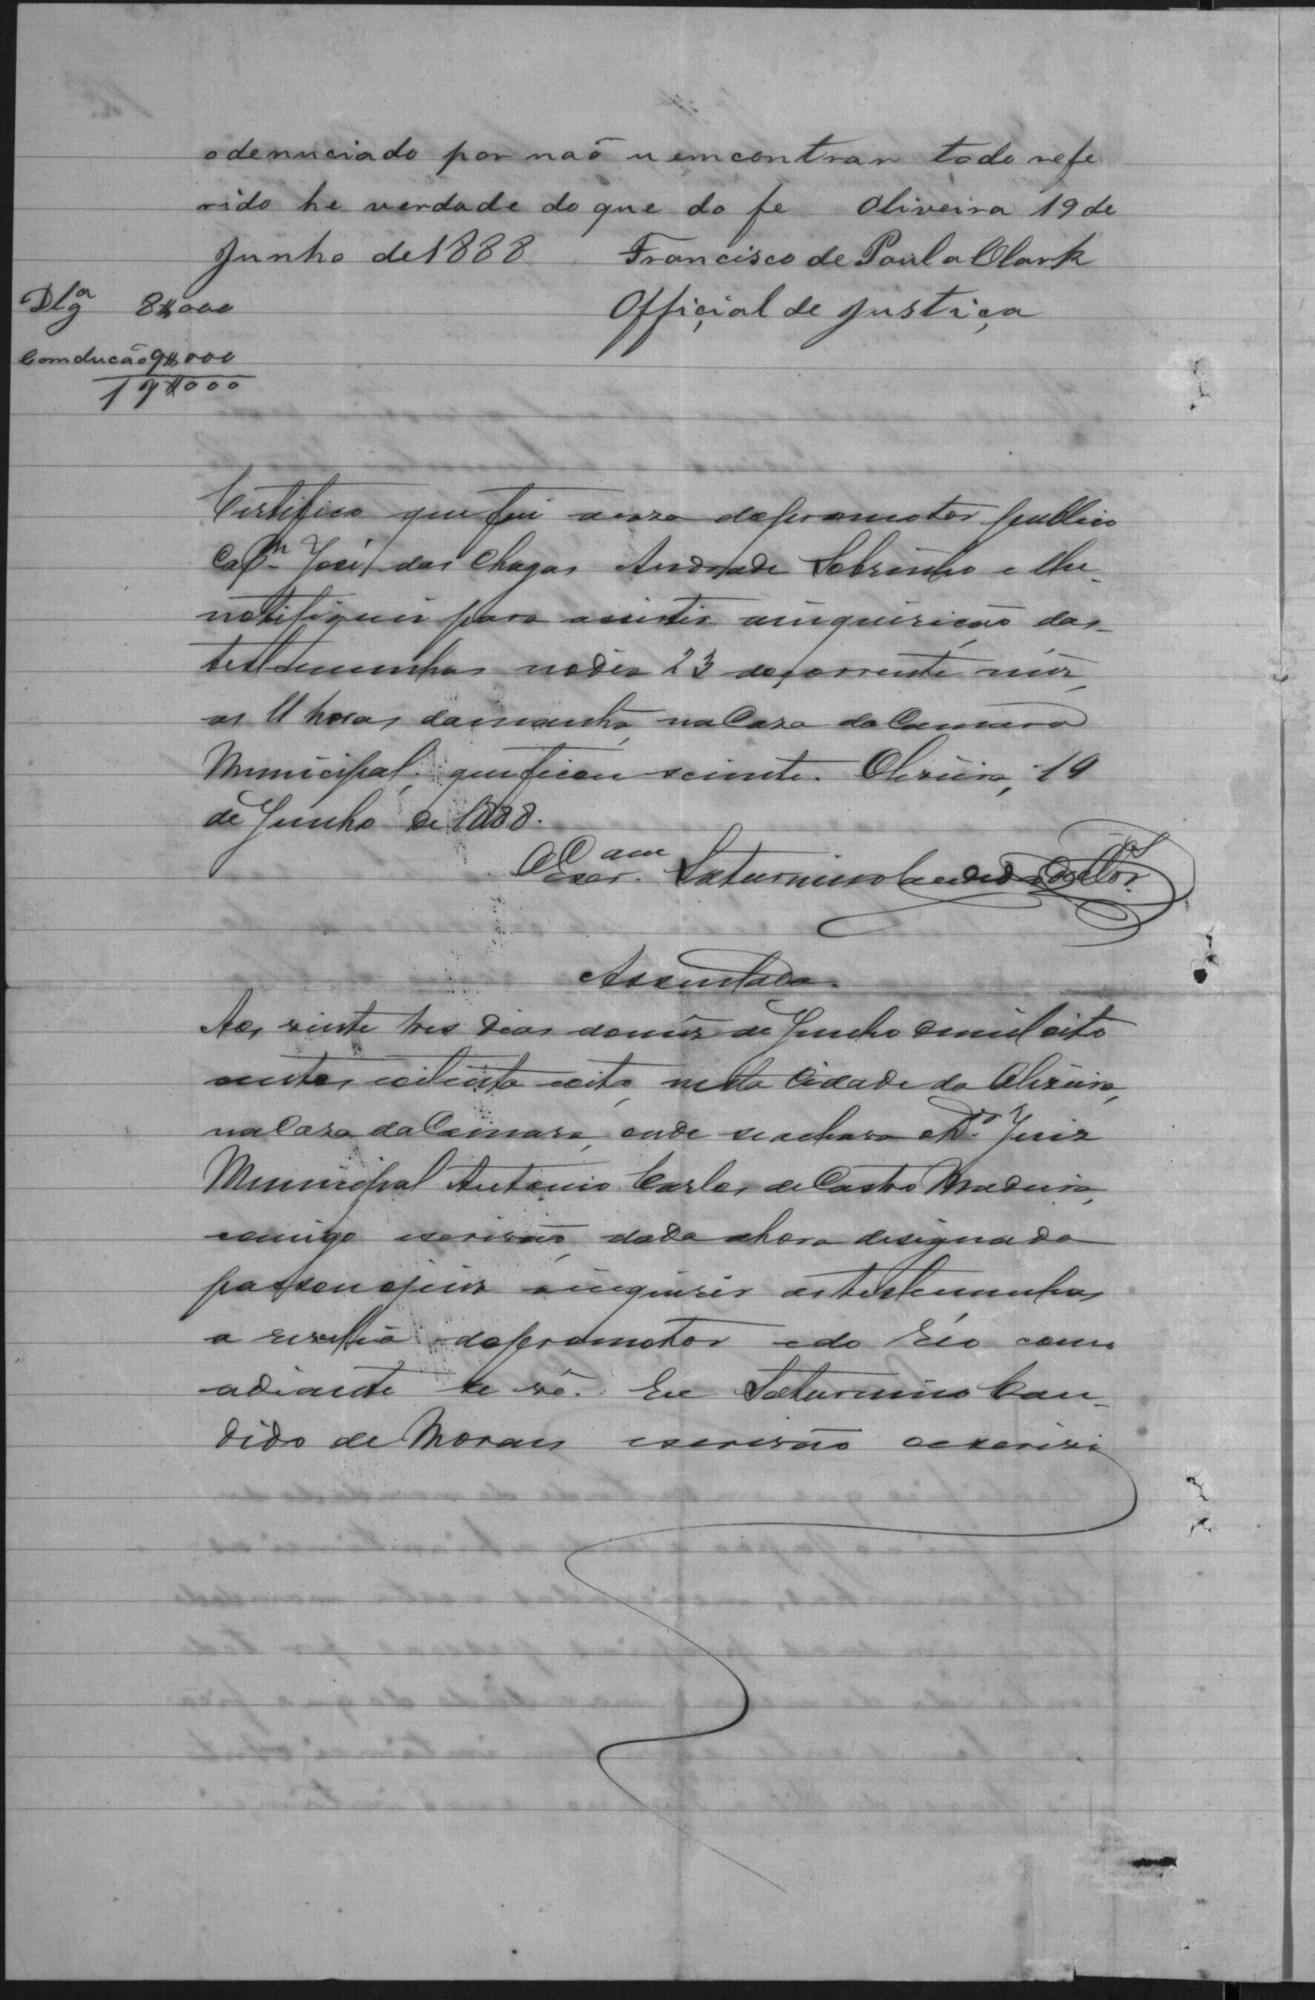 o denuciado por naõ u emcontrar todo refe
rido he verdade do que do fe Oliveira 19 de
Junho de 1888 Francisco de Paula Clark
Dlgª 8$000 Officjal de Justiça
Comducaõ 9$000
17$000
Certifico que fui acaza do promotor publico
Capᵐ José das Chagas Andrade Sobrinho e lhe
notifiquei para assistir ainquirição das
testemunhas nodia 23 do corrente mez,
as 11 horas damanhã, na Caza da Camara
Municipal, que ficou sciente. Oliveira, 19
de Junho de 1888.
O Escr. Saturnino Candido
Assentada.
Aos vinte tres dias domez de Junho de mil oito
centos oitenta eoito, nesta Cidade da Oliveira,
na Caza da Camara, onde se achava o Dr. Juiz
Municipal Antonio Carlos de Castro Madeira,
comigo escrivão, dada ahora designada
passou o juiz a inquirir as testemunhas
a revelia do promotor e do Réo como
adiante se vê. Eu Saturnino Can-
dido de Moraes escrivão o escrivi